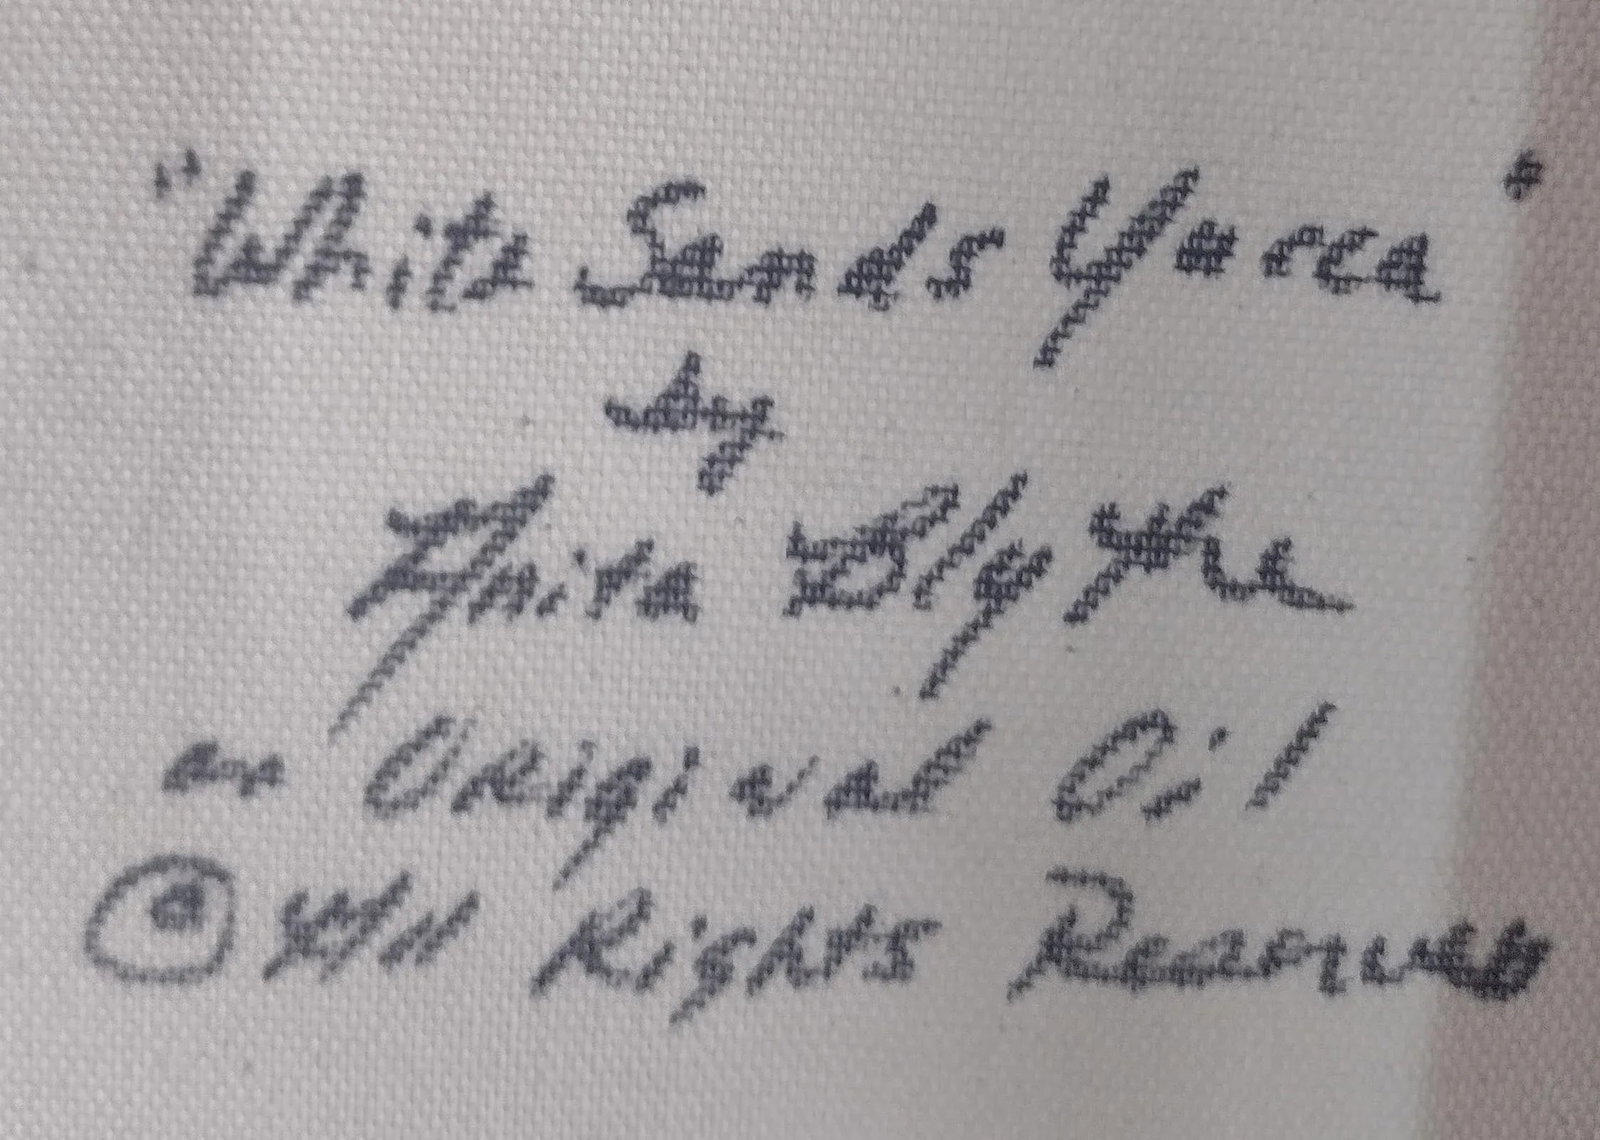 "White Sands Yucca"
by
Anita Blythe
an Original Oil
© All Rights Reserved